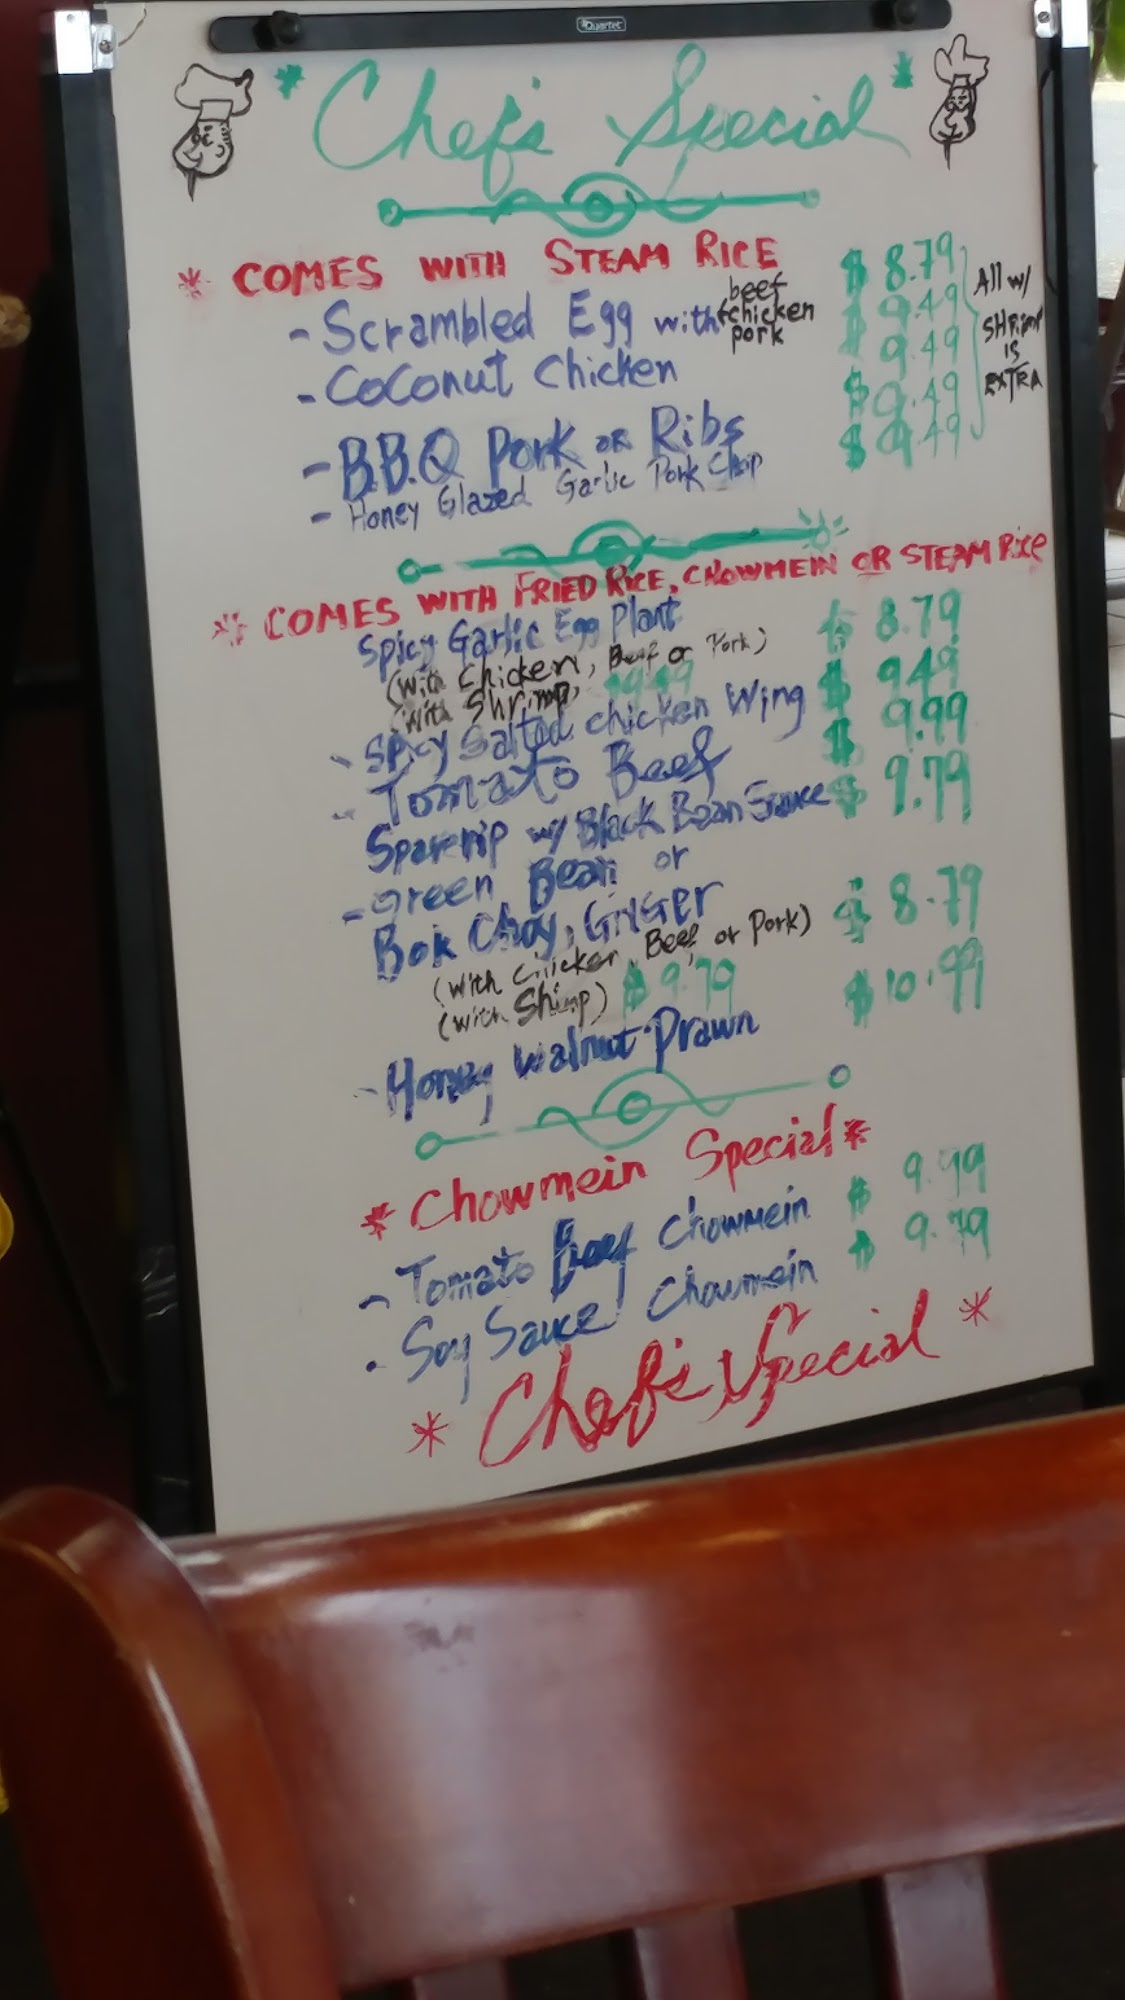 Quartet
* Chef's Special *
* COMES WITH STEAM RICE
- Scrambled Egg with beef chicken pork $ 8.79
- Coconut Chicken $ 9.49
$ 9.49
- B.B.Q Pork or Ribs $ 9.49
- Honey Glazed Garlic Pork Chop $ 9.49
All w/
SHRimp
is
EXTRA
* COMES WITH FRIED RICE, CHOWMEIN OR STEAM Rice
Spicy Garlic Egg Plant $ 8.79
(with Chicken, Beef or Pork)
(with Shrimp, $9.49
- Spicy Salted chicken Wing $ 9.49
- Tomato Beef $ 9.99
Sparerip w/ Black Bean Sauce $ 9.79
- Green Bean or
Bok Choy, GINGer $ 8.79
(with Chicken, Beef or Pork)
(with Shimp) $ 9.79
- Honey Walnut Prawn $ 10.99
* Chowmein Special *
- Tomato Beef Chowmein $ 9.99
- Soy Sauce Chowmein $ 9.79
* Chef's Special *